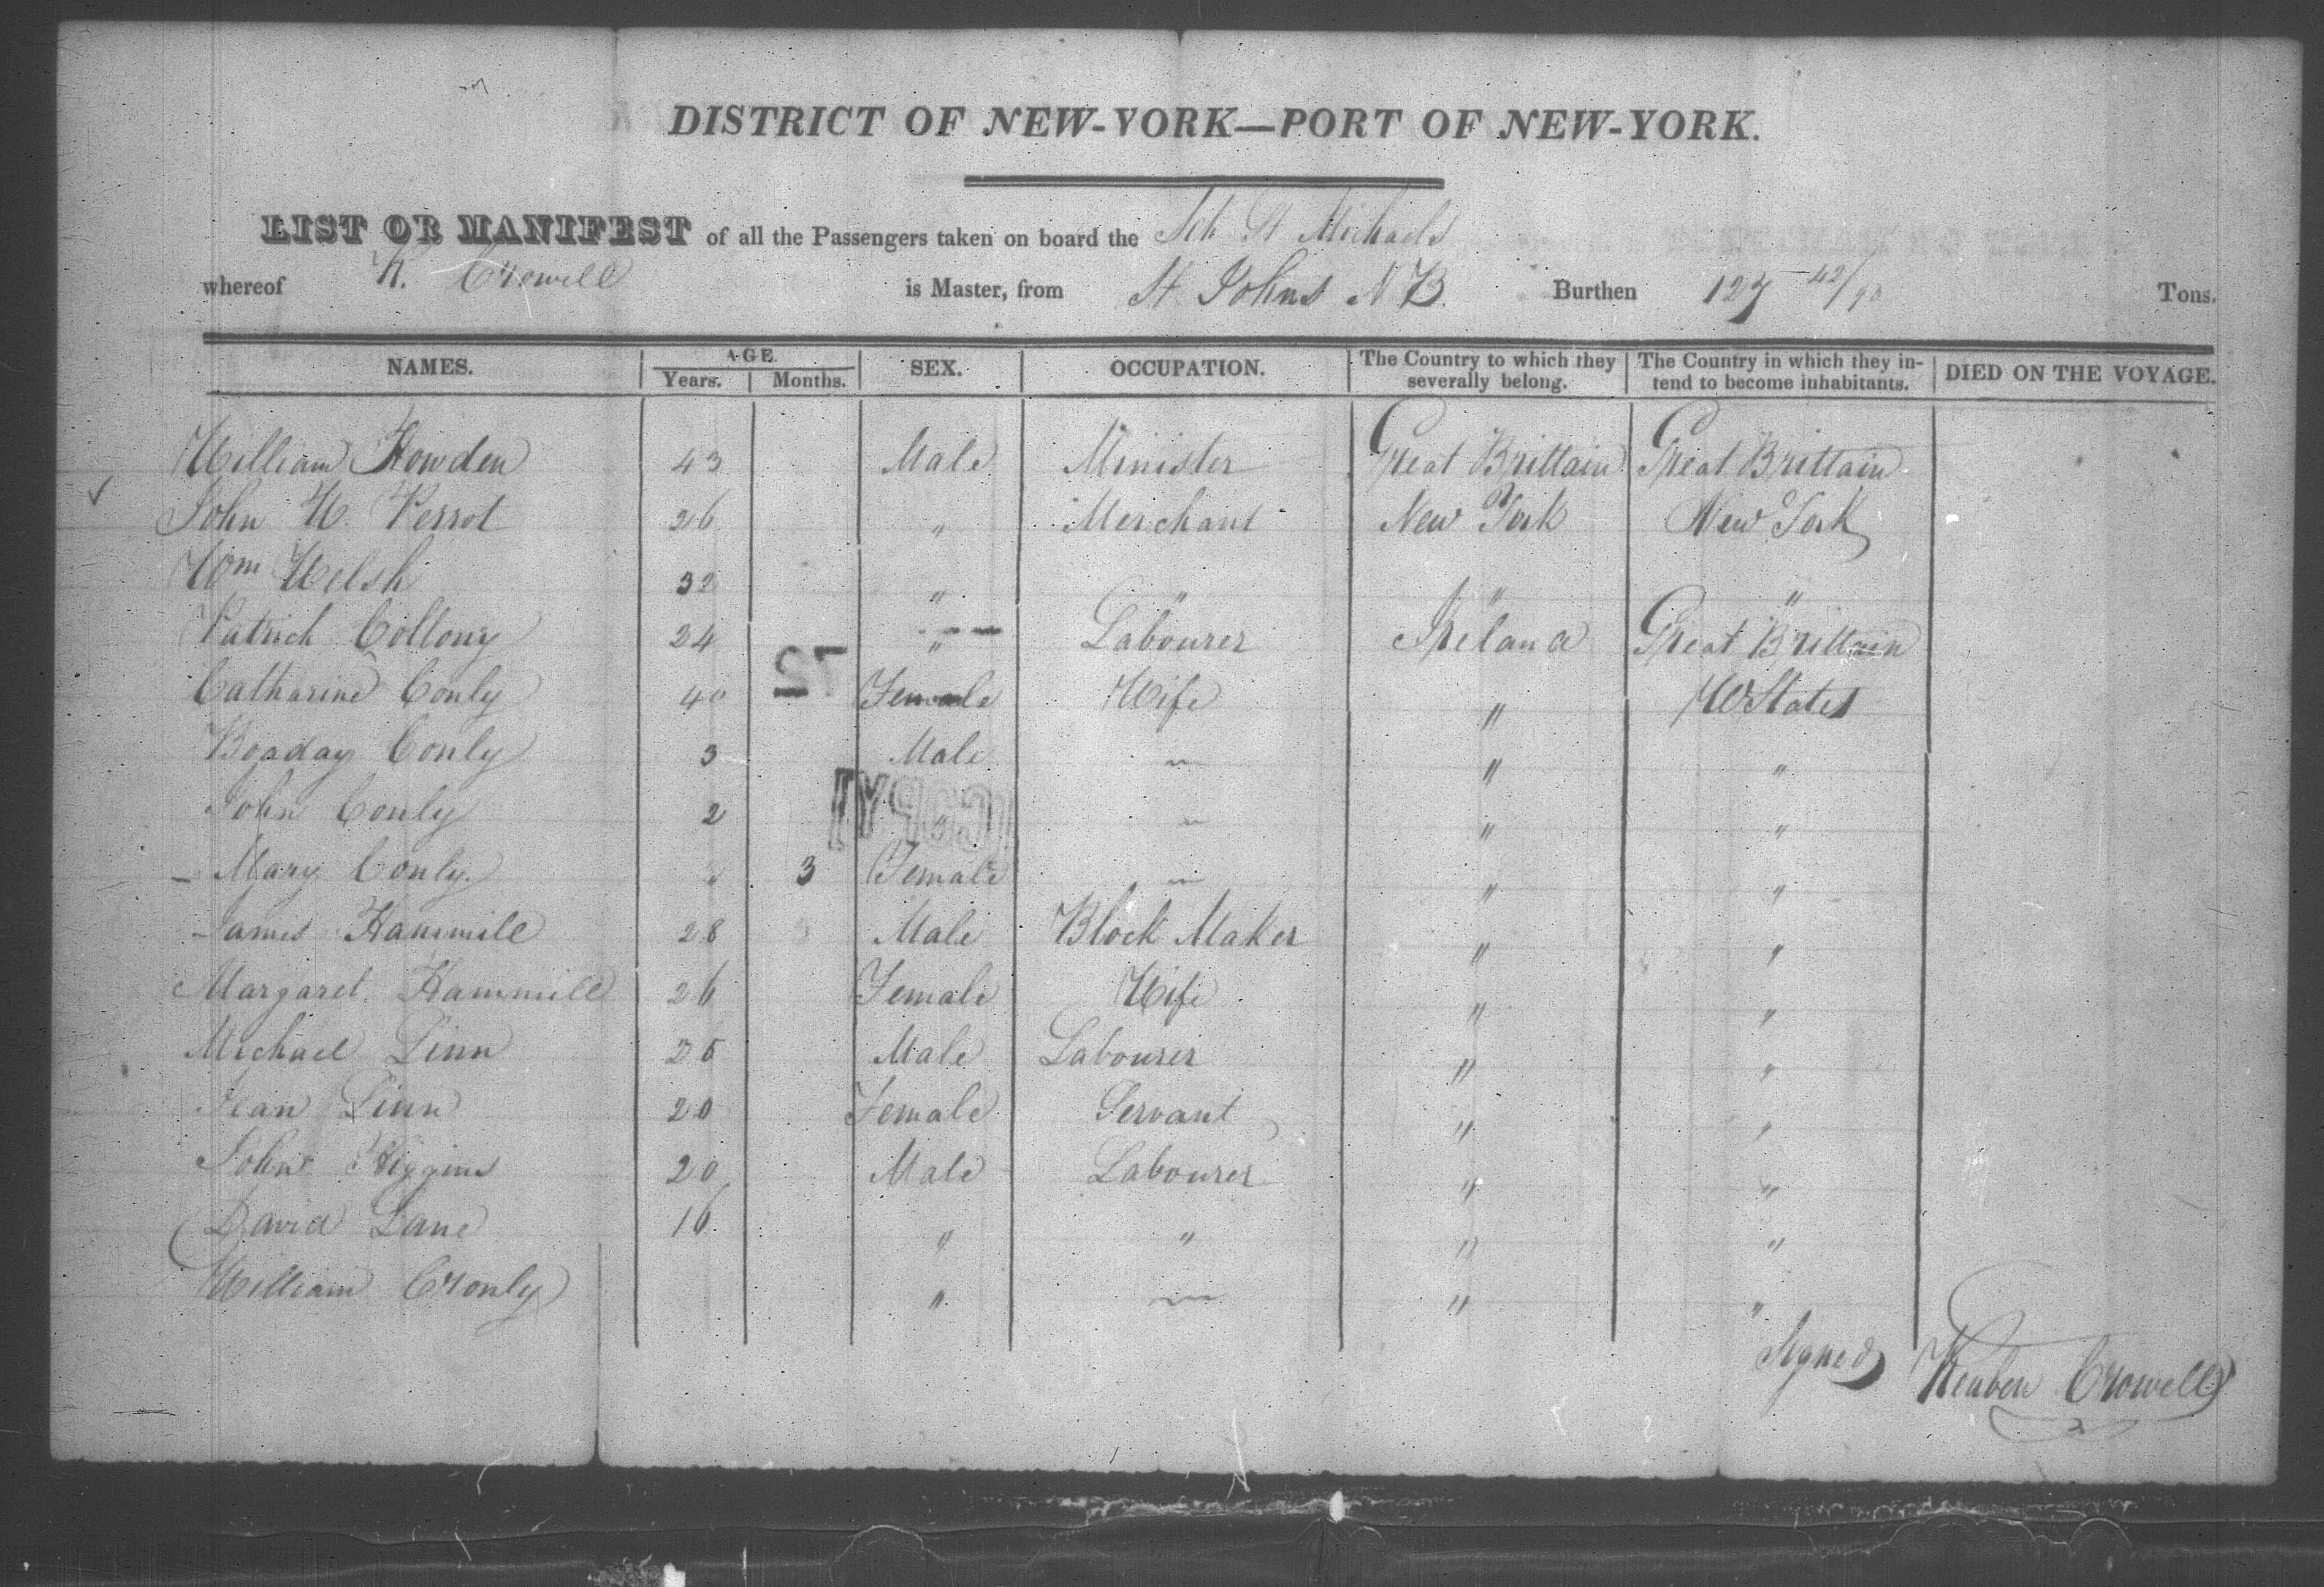 DISTRICT OF NEW-YORK—PORT OF NEW-YORK.
LIST OR MANIFEST of all the Passengers taken on board the Sch St Michaels
whereof R. Crowell is Master, from St Johns N B. Burthen 127 42/95 Tons.
NAMES. AGE. SEX. OCCUPATION. The Country to which they severally belong. The Country in which they intend to become inhabitants. DIED ON THE VOYAGE.
Years. Months.
William Howden 43 Male Minister Great Brittain Great Brittain
John W. Perrot 26 " Merchant New York New York
Wm Welsh 32 " " " "
Patrick Collony 24 " Labourer Ireland Great Brittain
Catharine Conly 40 Female Wife " U States
Boaday Conly 3 Male " " "
John Conly 2 " " " "
Mary Conly. " 3 Female " " "
James Hammill 28 Male Block Maker " "
Margaret Hammill 26 Female Wife " "
Michael Linn 25 Male Labourer " "
Jean Linn 20 Female Servant " "
John Higgins 20 Male Labourer " "
David Lane 16 " " " "
William Cronly " " " "
Signed Reuben Crowell